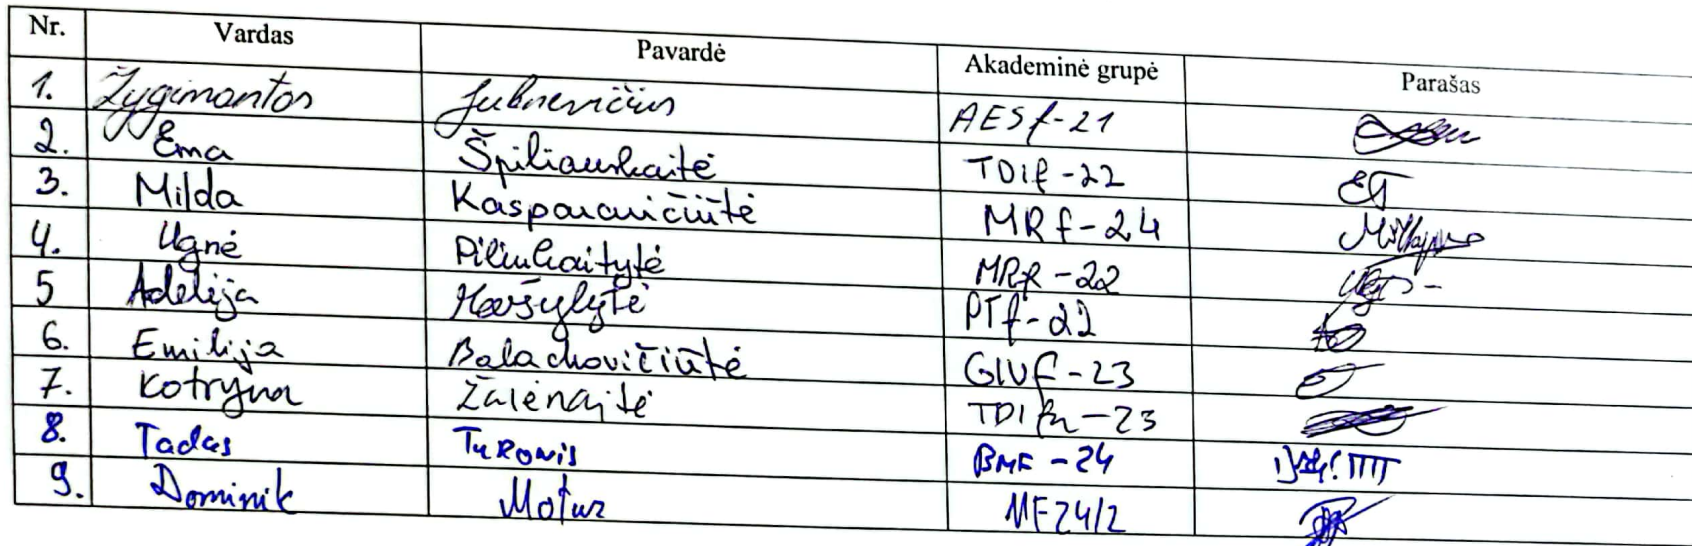 Nr. Vardas Pavardė Akademinė grupė Parašas
1. Žygimantas AESf-21
2. Ema Špiliauskaitė TDIf-22
3. Milda Kasparavičiūtė MRf-24
4. Ugnė Piliukaitytė MRf-22
5 Adelija PTf-22
6. Emilija Balachovičiūtė GIVf-23
7. Kotryna Žalėnaitė
8. Tadas Turonis BMF-24
9. Dominik Motuz MF24/2